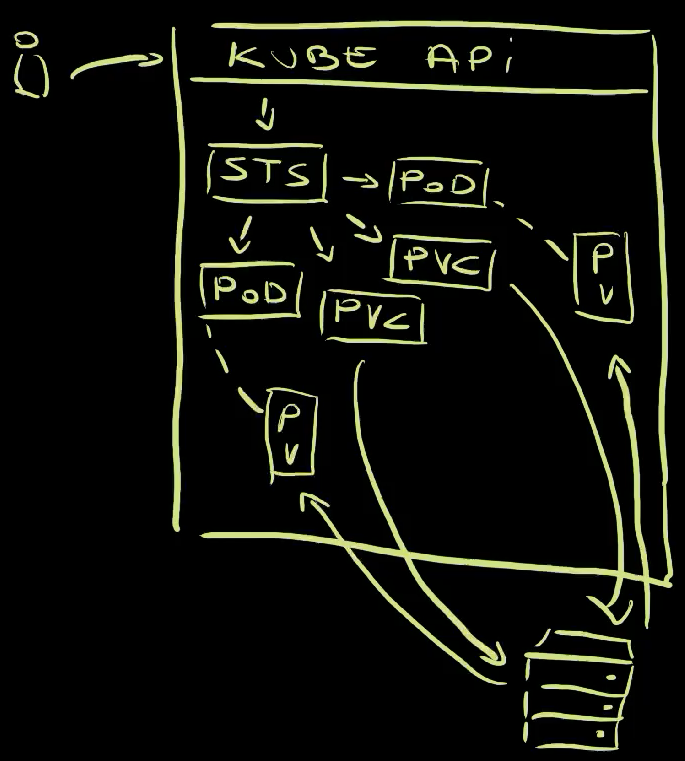 KUBE APi
STS
PoD
PVC
PoD
PVC
P
V
P
V